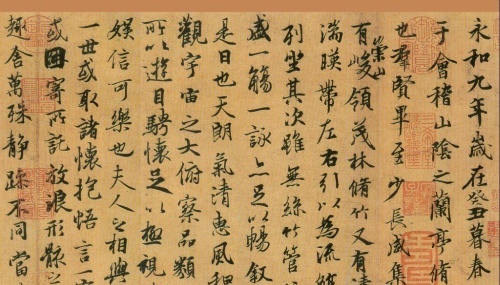 永和九年歲在癸丑暮春
于會稽山陰之蘭亭脩
也羣賢畢至少長咸集
有崇山峻領茂林脩竹又有清
湍暎帶左右引以為流
列坐其次雖無絲竹管
盛一觴一詠亦足以暢敘
是日也天朗氣清惠風和
觀宇宙之大俯察品類
所以遊目騁懷足以極視
娛信可樂也夫人之相與
一世或取諸懷抱悟言一
或因寄所託放浪形骸之
趣舍萬殊靜躁不同當